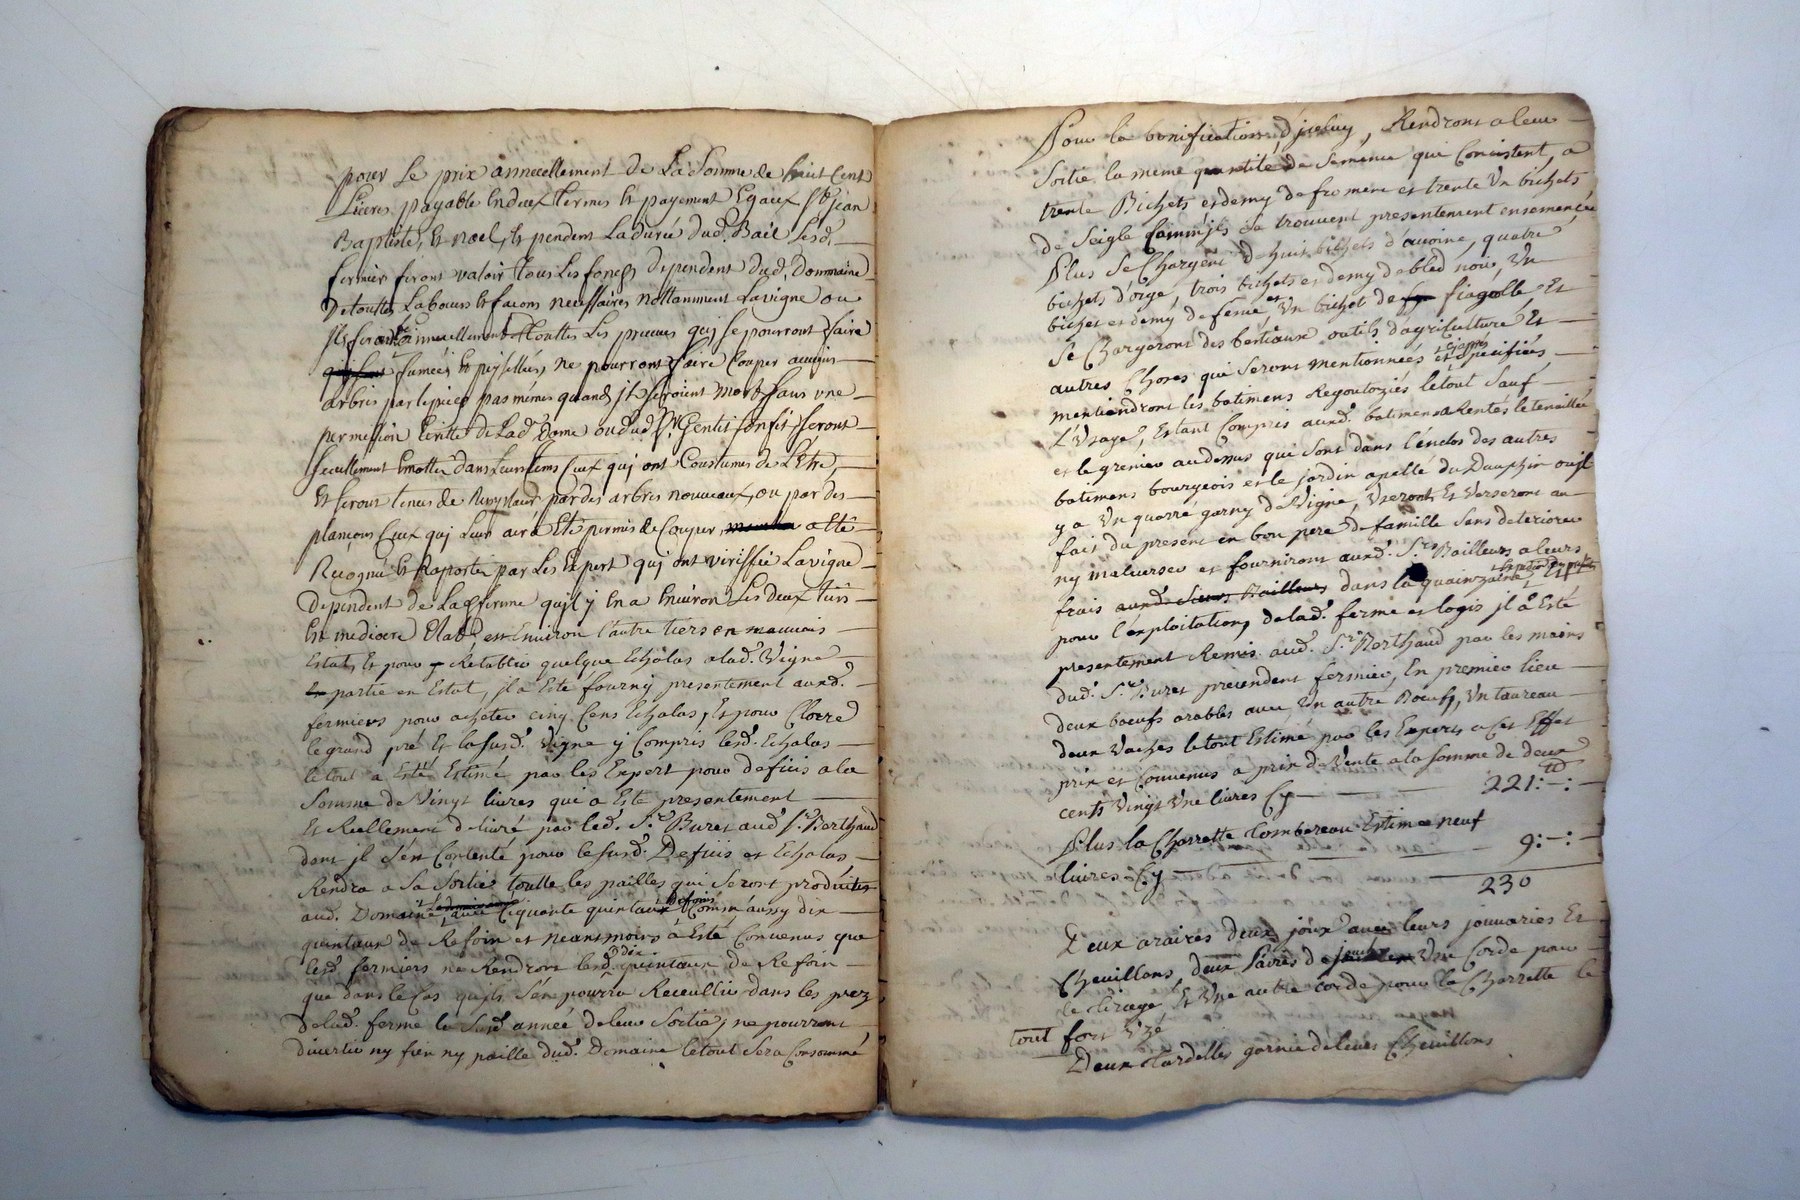 pour Le prix annuellement de La Somme de huit Cent
Livres, payable En deux Termes Et payement Egaux St jean
Baptiste, Et noel, Et pendent La durée dud. Bail Lesd.
fermier feront valoir Tous Les fonds dependent Dud. Dommaine
De touttes Labours Et facons necessaires nottamment La vigne ou
Ils feront annuellement Touttes Les preuves quj se pourront faire
fumées Et peysellées, ne pourront faire Couper aucuns
arbres par le pied pas mêmes quand jls seroient morts sans une
permission Ecritte De Lad. Dame ou dud. Sr Gentil son fils feront
seullement Emotter dans Leurs tems Ceux quj ont Coustumes de L'Etre,
Et seront tenus de Remplacer par des arbres nouveaux, ou par des
plançons Ceux quj Leur aura Eté permis de Couper, a Eté
Recognu Et Raporter par Les Expert quj ont viriffiée La vigne
dependent de La fferme qu'jl y En a Environ Les Deux tiers
En mediocre Etat et Environ l'autre tiers en mauvais
Estat, Et pour Rétablir quelque Echalas a lad. Vigne
partie en Estat, jl a Este fourny presentement auxd.
fermiers pour acheter cinq Cens Echalas, Et pour Clorre
le grand pré Et la susd. Vigne y Compris lesd. Echalas
le tout a Esté Estimé par les Expert pour deficis a la
Somme de Vingt livres qui a Este presentement
Et Reellement delivré par led. Sr. Buret aud. Sr. Berthaud
dont jl s'en Contenté pour le susd. Deficis et Echalas
Rendra a Sa Sortie toutte les pailles qui Seront produites
aud. Domaine, avec Ciquante quintaux De foins Comm'aussy dix
quintaux de Refoin et neantmoins a Esté Convenus que
lesd. fermiers ne Rendront lesd. dix quintaux de Refoin
que dans le Cas qu'jls s'en pourra Receullir dans les prez
de lad. ferme le Susd. année de leur Sortie, ne pourront
divertir ny fien ny paille dud. Domaine le tout Sera Consommé
Pour la bonification, d'jceluy, Rendront a leur
Sortie la meme quantité de Semence qui Concistent, a
trente Bichets et demy de froment et trente Un bichets
de Seigle Comm'jls Se trouvent presentement ensemencée
Plus Se Chargent de huit bichets d'avoine, quatre
bichets d'orge, trois bichets et demy de bled noir, Un
bichet et demy de feves, et Un bichet de fiagolle Et
Se Chargeront des bestiaux outils d'agriculture Et
autres Choses qui Seront mentionnées et Specifiées
mentiendront les batimens Regoutoyiés le tout Sauf
L'Usage, Estant Compris auxd. batimens Rentés le tenaillée
et le grenier au dessus qui sont dans l'enclos des autres
batimens bourgeois et le jardin apellé du Dauphin ou jl
y a Un quarré garny de Vigne, Useront Et Verseront au
fait du present en bon pere de famille Sens deteriorer
ny malverser et fourniront auxd. Srs Bailleurs a leurs
frais dans la quainzaine, Et
pour l'exploitations de lad. ferme et logis jl a Esté
presentement Remis aud. Sr. Berthaud par les mains
dud. Sr. Buret precendent fermier, En premier lieu
deux boeufs arables avec Un autre Boeufs, Un taureau
deux Vaches le tout Estimé par les Experts a Cet Effet
prix et Convenus a prix de Vente a la Somme de deux
cents Vingt Une livres Cy 221: - :
Plus la Charrette Tombereau Estimé neuf
livres Cy 9: - :
230
Deux araires deux joux avec leurs jouuaries Et
Cheuillons, deux Une Corde pour
le tirage Et Une autre Corde pour la Charrette le
tout fort Uzé
Deux Tardelles garnie de leurs Cheuillons